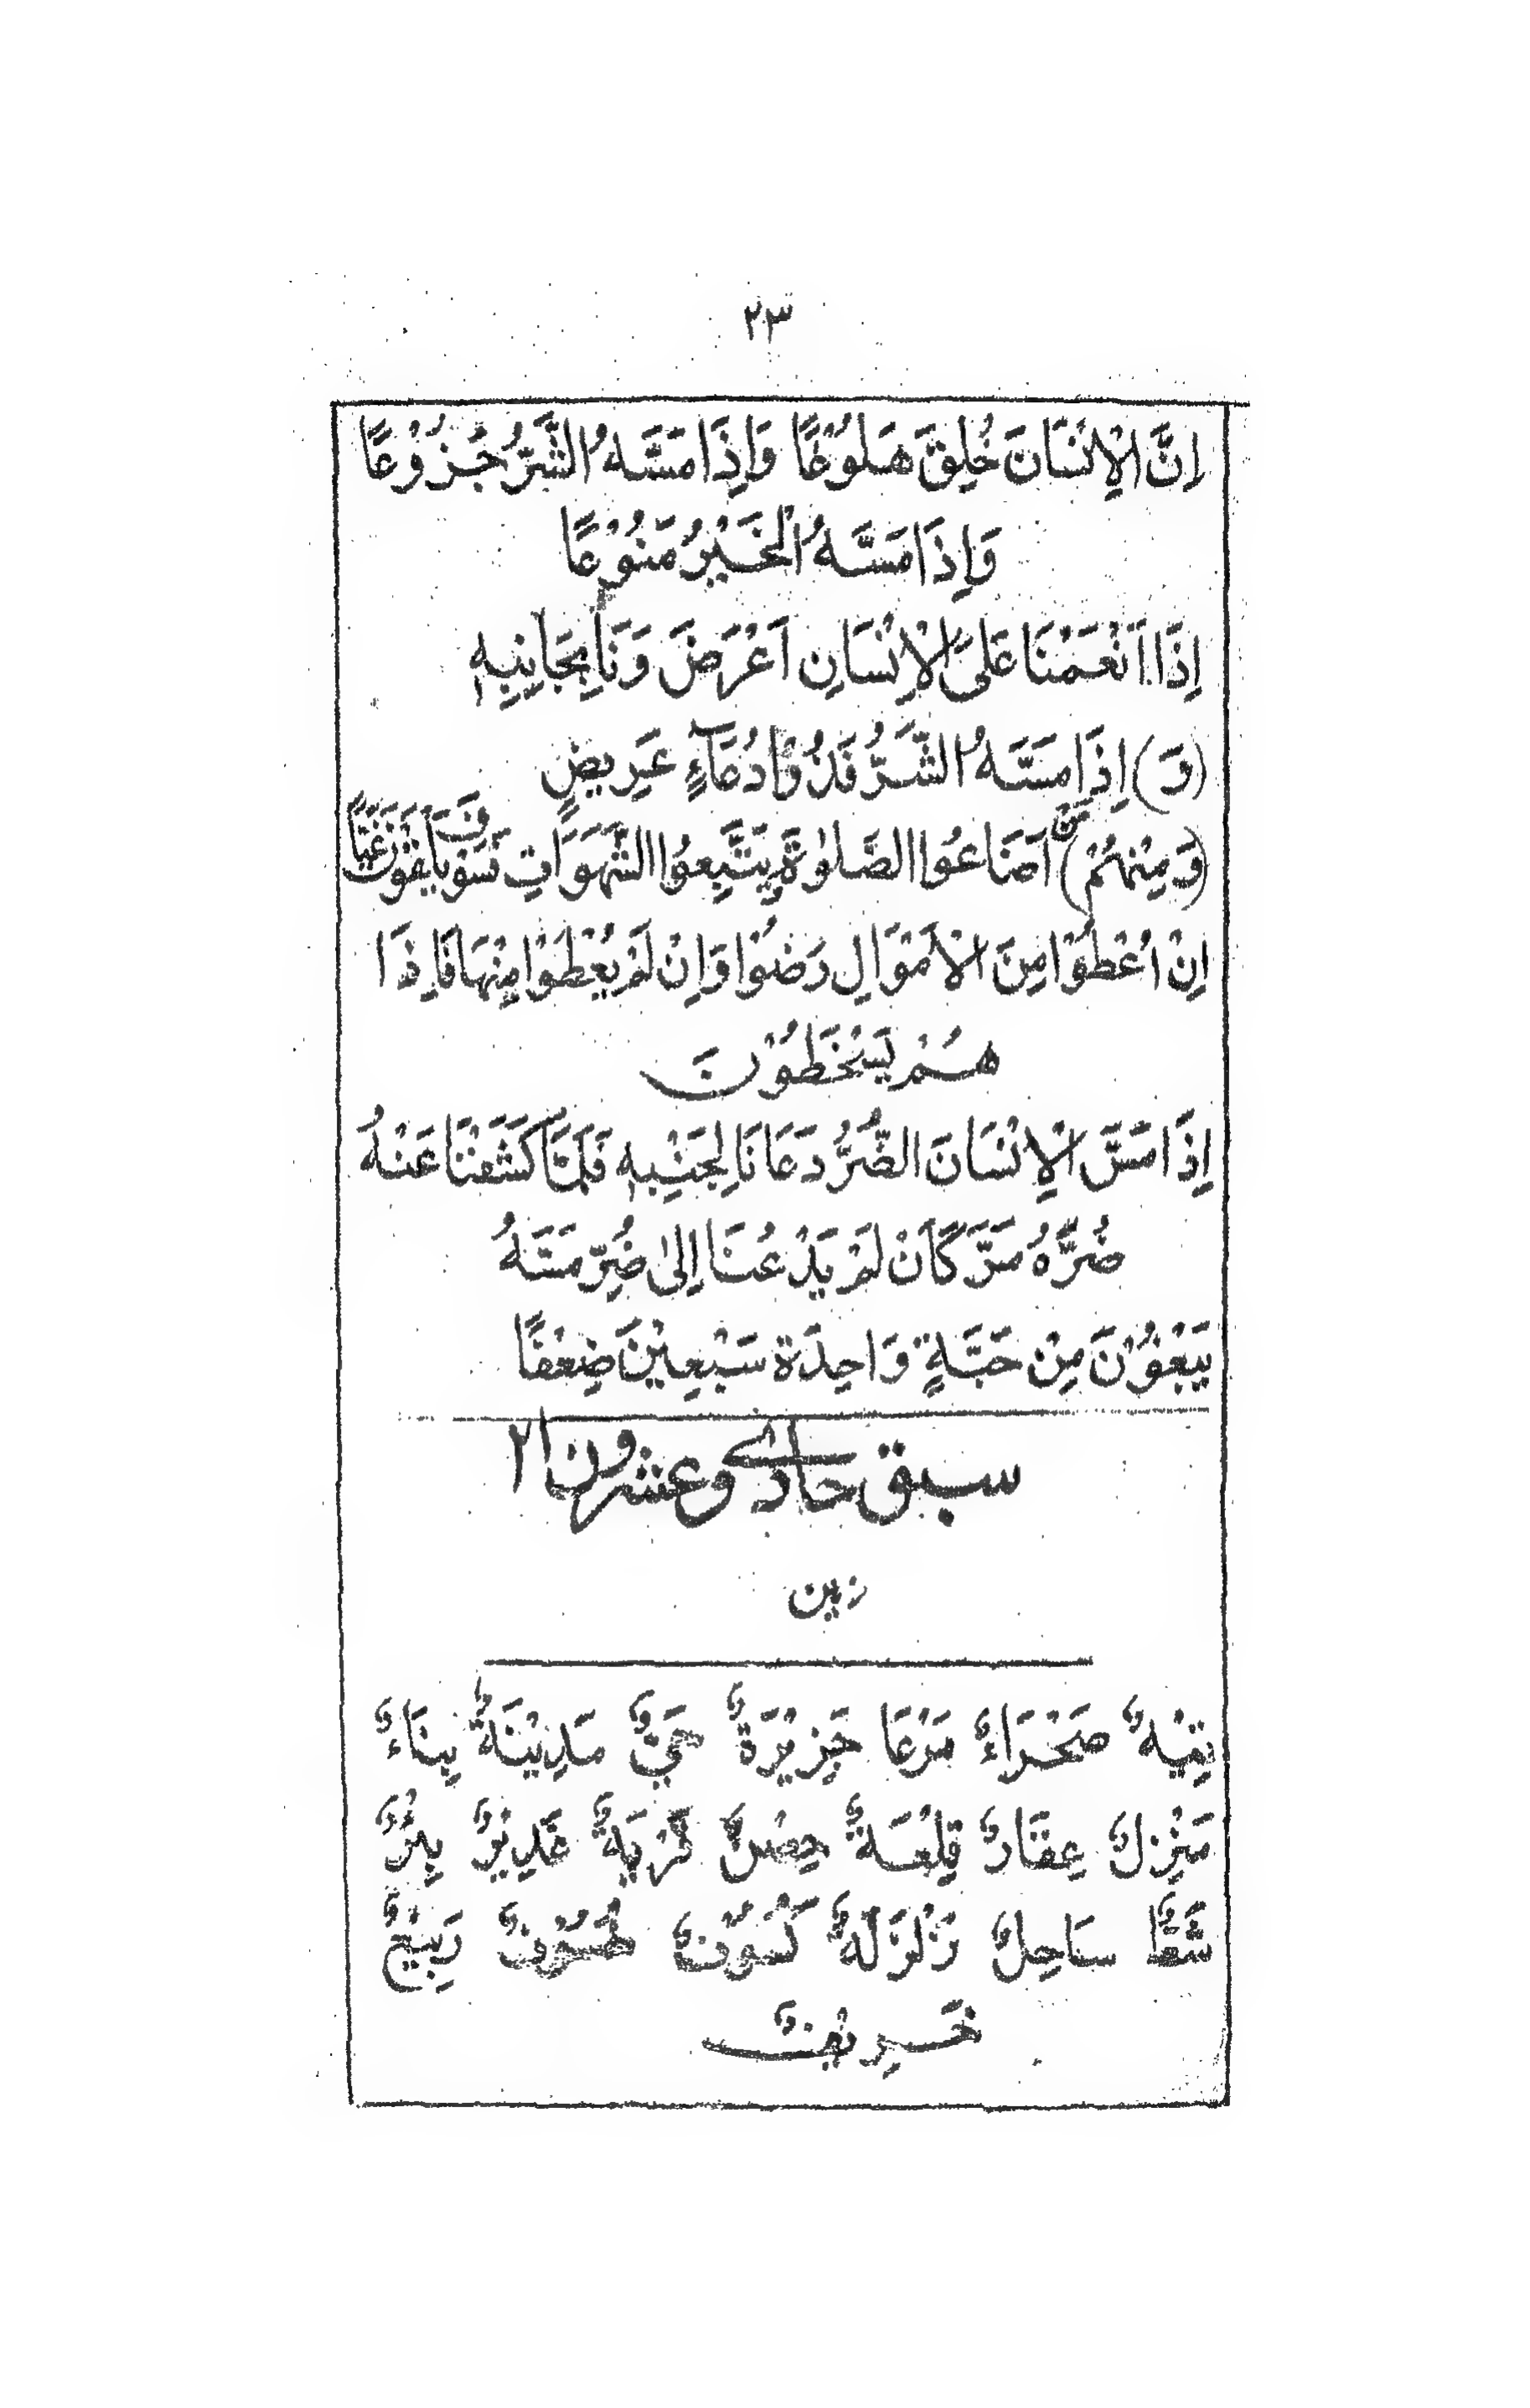 ٢٣
اِنَّ الْاِنْسَانَ خُلِقَ هَلُوْعًا وَاِذَا مَسَّهُ الشَّرُّ جُزُوْعًا
وَاِذَا مَسَّهُ الْخَيْرُ مَنُوْعًا
اِذَا اَنْعَمْنَا عَلَى الْاِنْسَانِ اَعْرَضَ وَنَاِبِجَانِبِهٖ
(وَ) اِذَا مَسَّهُ الشَّرُّ فَذُوْا دُعَآءٍ عَرِيضٍ
(وَمِنْهُمْ) مَنْ اَضَاعُوا الصَّلٰوةَ يَتَّبِعُوا الشَّهَوَاتِ فَسَوْفَ يَلْقَوْنَ غَيًّا
اِنْ اُعْطُوْا مِنَ الْاَمْوَالِ رَضُوْا وَاِنْ لَمْ يُعْطَوْا مِنْهَا فَاِذَا
هُمْ يَسْخَطُوْنَ
اِذَا مَسَّ الْاِنْسَانَ الضُّرُّ دَعَانَا لِجَنْبِهٖ فَلَمَّا كَشَفْنَا عَنْهُ
ضُرَّهُ مَرَّ كَاَنْ لَمْ يَدْعُنَا اِلٰى ضُرٍّ مَسَّهُ
يَبْغُوْنَ مِنْ حَبَّةٍ وَاحِدَة سَبْعِيْنَ ضِعْفًا
سبق حادی وعشرون ٢١
زمین
تِيْهٌ صَحْرَاءٌ مَرْعَا جَزِيْرَةٌ حَيٌّ مَدِيْنَةٌ بِنَاءٌ
مَنْزِلٌ عِقَارٌ قِلْعَةٌ حِصْنٌ قَرْيَةٌ غَدِيْرٌ بِئْرٌ
شَطٌّ سَاحِلٌ زَلْزَلَةٌ كُسُوْفٌ خُسُوْفٌ رَبِيْعٌ
خَرِيْفٌ